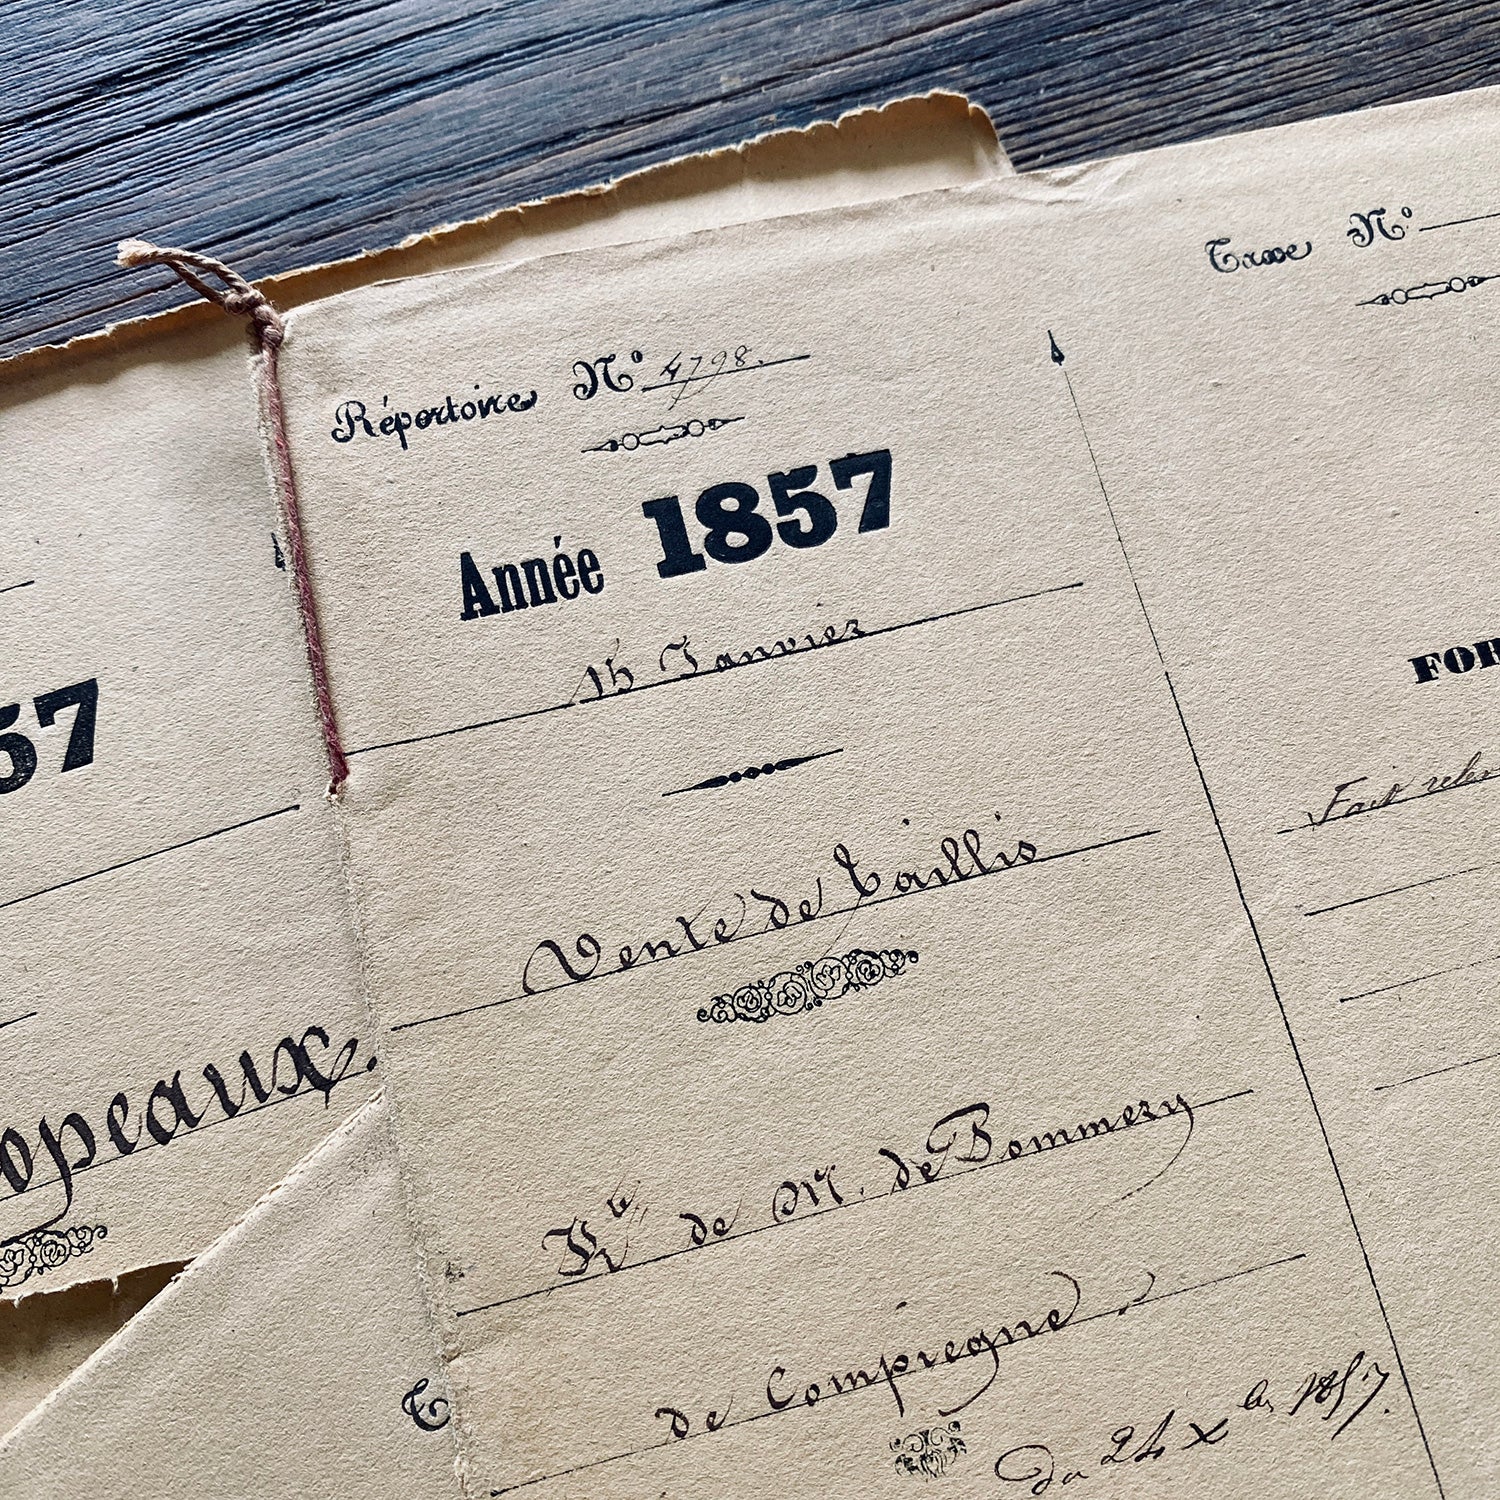 Répertoire N° 4798.
Année 1857
15 Janvier
Vente de Taillis
de M. de Bommery
de Compiegne
Du 24 Xbre 1857.
Taxe N°
FOR
Fait
57
opeaux.
T